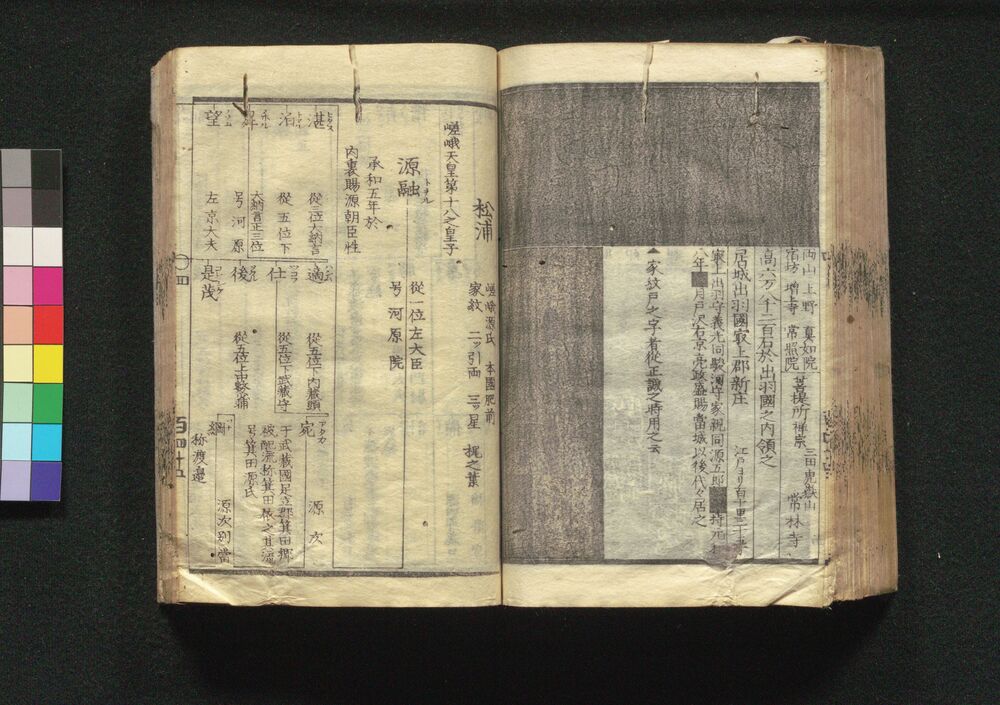 両山 上野 真如院
宿坊 増上寺 常照院
菩提所 禅宗 三田 虎嶽山 常林寺
高六万八千二百石於出羽國之内領之
居城出羽國㝡上郡新庄
江戸ヨリ百十里
寒上出羽守義光同駿河守家親同源五郎
月戸沢右京亮政盛賜當城以後代々居之
家紋戸之字者従正誠之時用之云
松浦
嵯峨源氏 本國肥前
家紋 二ッ引両 三ッ星 梶之葉
嵯峨天皇第十八之皇子
源融
トヲル
従一位左大臣
号河原院
承和五年於
内裏賜源朝臣姓
湛
従三位大納言
適
従五位下内蔵頭
泊
従五位下
仕
従五位下武蔵守
昇
大納言正三位
号河原
後
従五位上中務大輔
望
左京大夫
是茂
宛
アタカ
源次
于武蔵國足立郡箕田郷
被配流称箕田依之其流
号箕田源氏
綱
源次別當
称渡邉
百四十五